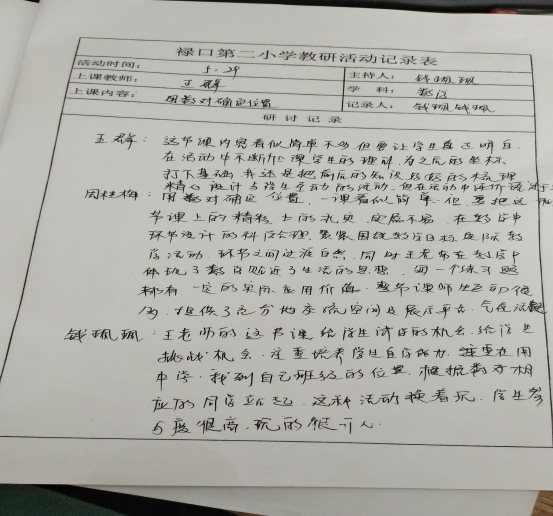 禄口第二小学教研活动记录表
活动时间： 5.29 主持人： 钱珮珮
上课教师： 王群 学 科： 数学
上课内容： 用数对确定位置 记录人： 钱珮珮
研 讨 记 录
王群： 这节课内容看似简单不多但要让学生真正明白
在活动中不断加深学生的理解，为之后的坐标
打下基础，我还是把前后的知识
精心设计与学生互动的活动，但在活动中评价
用数对确定位置，一课看似简单，但要把这
学课上的精彩，上的扎实，实属不易，在教学中
环节设计的科学合理，紧紧围绕教学目标实际教
学活动，环节之间过渡自然，同时王老师在教学中
体现了数学贴近了生活的思想，每一个练习题
都有一定的实际应用价值，整节课师生互动很
好，提供了充分地交流空间及展示平台，气氛活跃
钱珮珮： 王老师的这节课给学生讲的机会，给学生
挑战机会，注重培养学生自学能力，注重在用
中学，找到自己班级的位置，根据数对相
应的同学站起，这种活动接着玩，学生参
与度很高，玩的很开心.